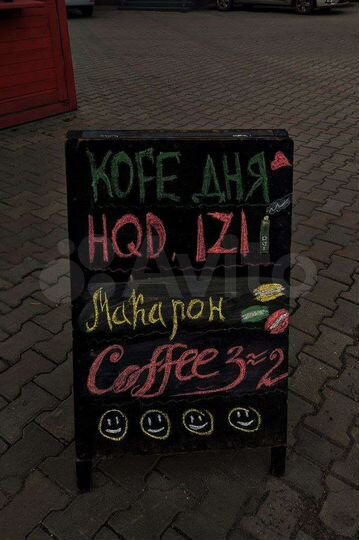 КОФЕ ДНЯ
HQD, IZI
Макарон
Coffee 3≈2
Avito